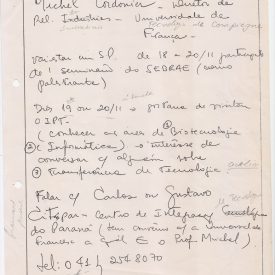 Michel Cordonier - Diretor de
Rel. Industriais - Universidade de
Tecnologia de Compiegne
França -
vai estar em SP. de 18 a 20/11 participando
de 1 seminário do SEBRAE (como
palestrante)
Dia 19 ou 20/11 gostaria de visitar
o IPT.
(conhecer as áreas de ① Biotecnologia
② (Informática) o interesse de
conversar c/ alguém sobre
③ transferência de tecnologia
Falar c/ Carlos ou Gustavo
Citpar - Centro de Integração Tecnológica
do Paraná (tem convênio c/ a Universidade
Francesa a qual é o Prof. Michel)
tel: 041 254 8070